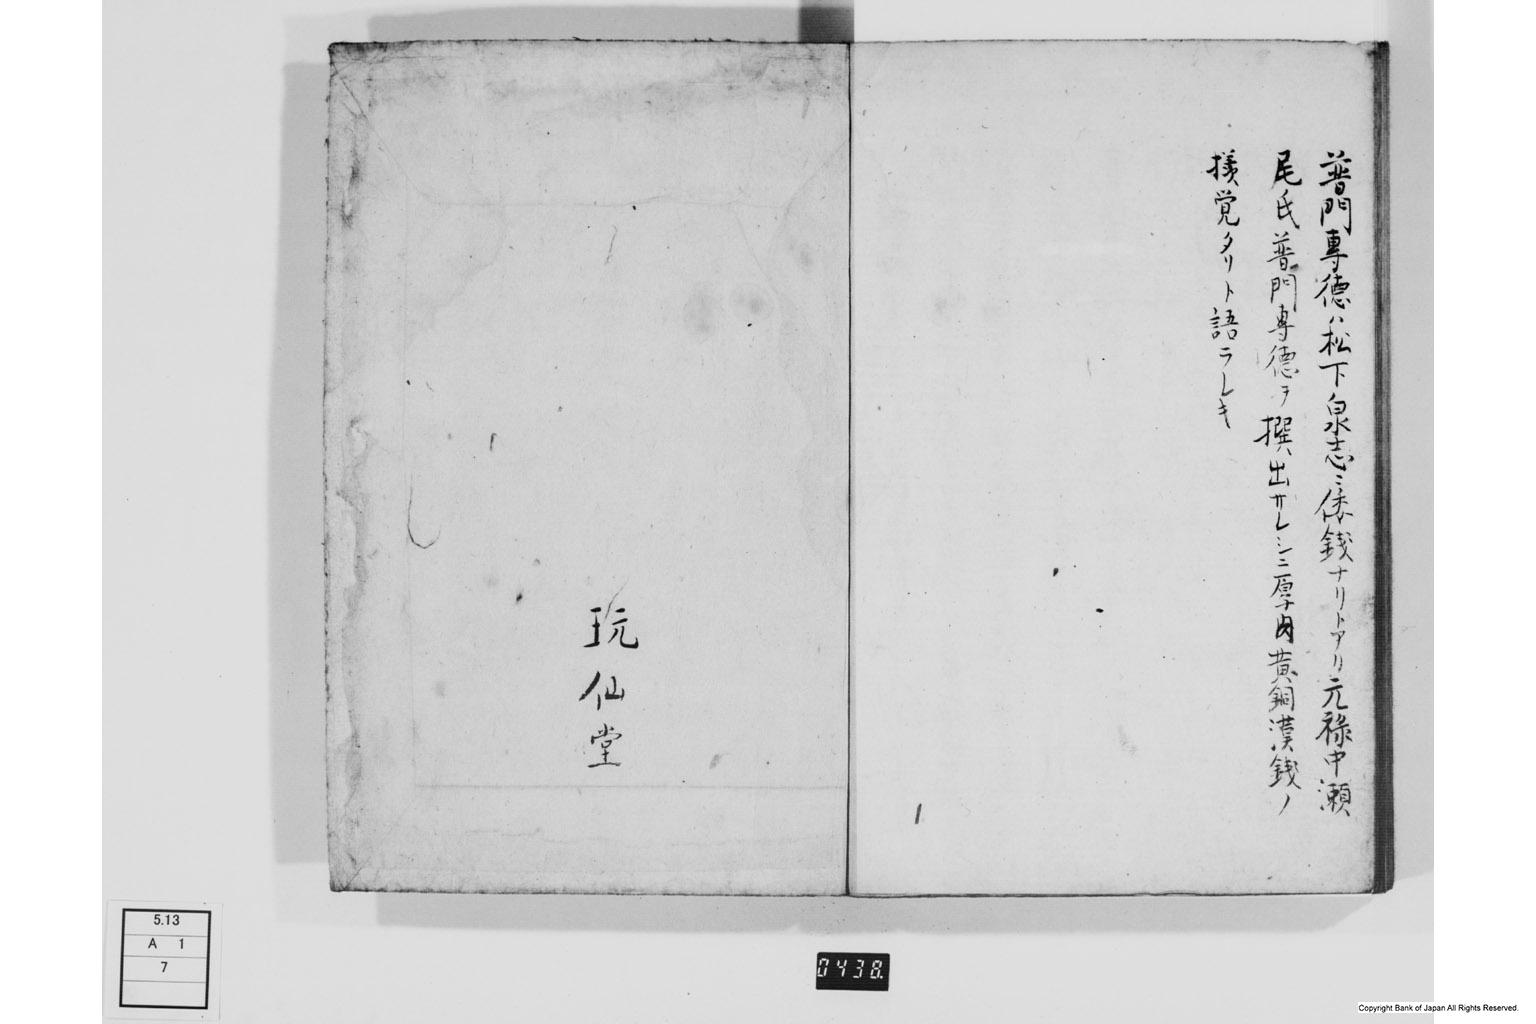 普門専徳ハ松下泉志ニ倭銭ナリトアリ元禄中瀬
尾氏普門専徳ヲ撰出サレシニ厚肉黄銅漢銭ノ
様覚タリト語ラレキ
玩仙堂
5.13
A 1
7
0438.
Copyright Bank of Japan All Rights Reserved.